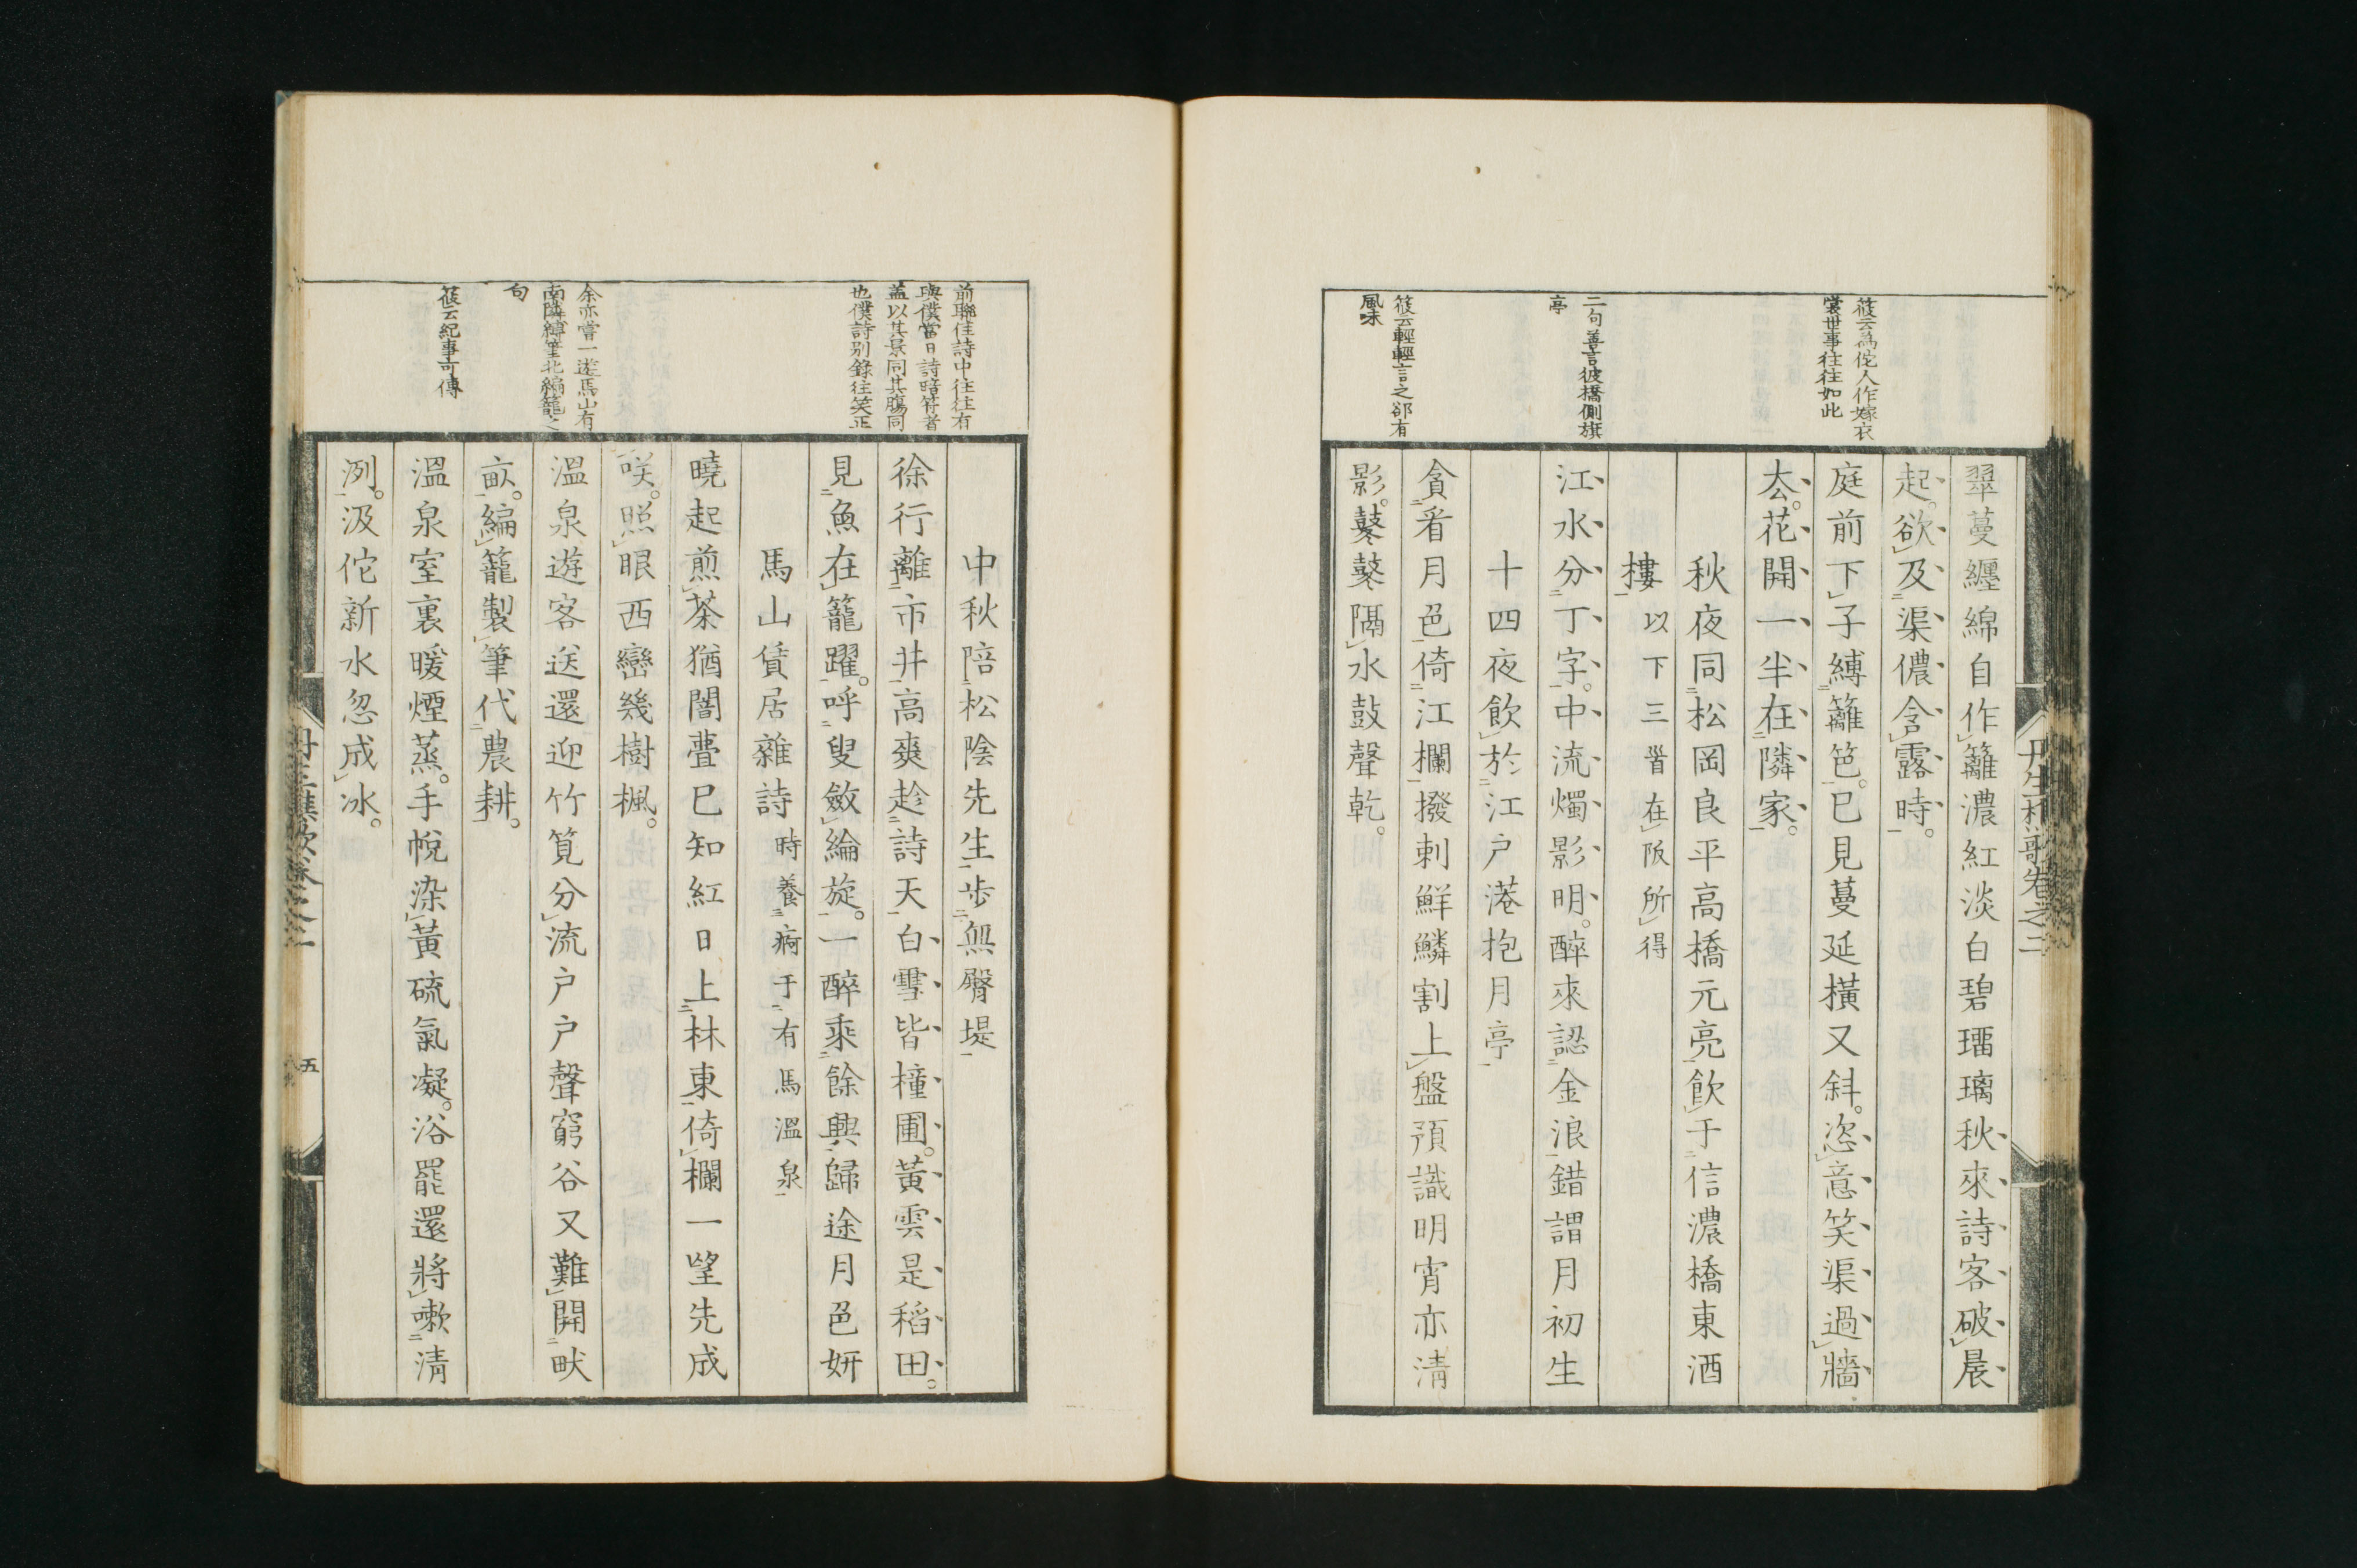 筱云為佗人作嫁衣
裳世事往往如此
二句善言彼橋側旗
亭
筱云輕輕言之郤有
風味
翠蔓纏綿自作籬濃紅淡白碧璢璃秋來詩客破晨
起。欲及渠儂含露時。
庭前下子縛籬笆。已見蔓延橫又斜。恣意笑渠過牆
厺。花開一半在隣家。
秋夜同松岡良平高橋元亮飲于信濃橋東酒
樓以下三首在阪所得
江水分丁字。中流燭影明。醉來認金浪錯謂月初生
十四夜飲於江戶港抱月亭
貪看月色倚江欄撥剌鮮鱗割上盤預識明宵亦清
影。鼕鼕隔水鼓聲乾。
丹生樵歌卷之二
前聯佳詩中往往有
與僕當日詩暗符者
蓋以其景同其腸同
也僕詩别錄往笑正
余亦嘗一遊馬山有
南隣縛筆北編籠之
句
筱云紀事可傳
中秋陪松陰先生步無臀堤
徐行離市井高爽趁詩天白雪皆橦圃。黃雲是稻田。
見魚在籠躍。呼叟斂綸旋。一醉乘餘興歸途月色姸
馬山賃居雜詩時養痾于有馬溫泉
曉起煎茶猶闇疊已知紅日上林東倚欄一望先成
咲。照眼西巒幾樹楓。
溫泉遊客送還迎竹筧分流戶戶聲窮谷又難開畎
畝。編籠製筆代農耕。
溫泉室裏暖煙蒸。手帨染黃硫氣凝。浴罷還將嗽清
洌。汲佗新水忽成冰。
丹生樵歌卷之二
五